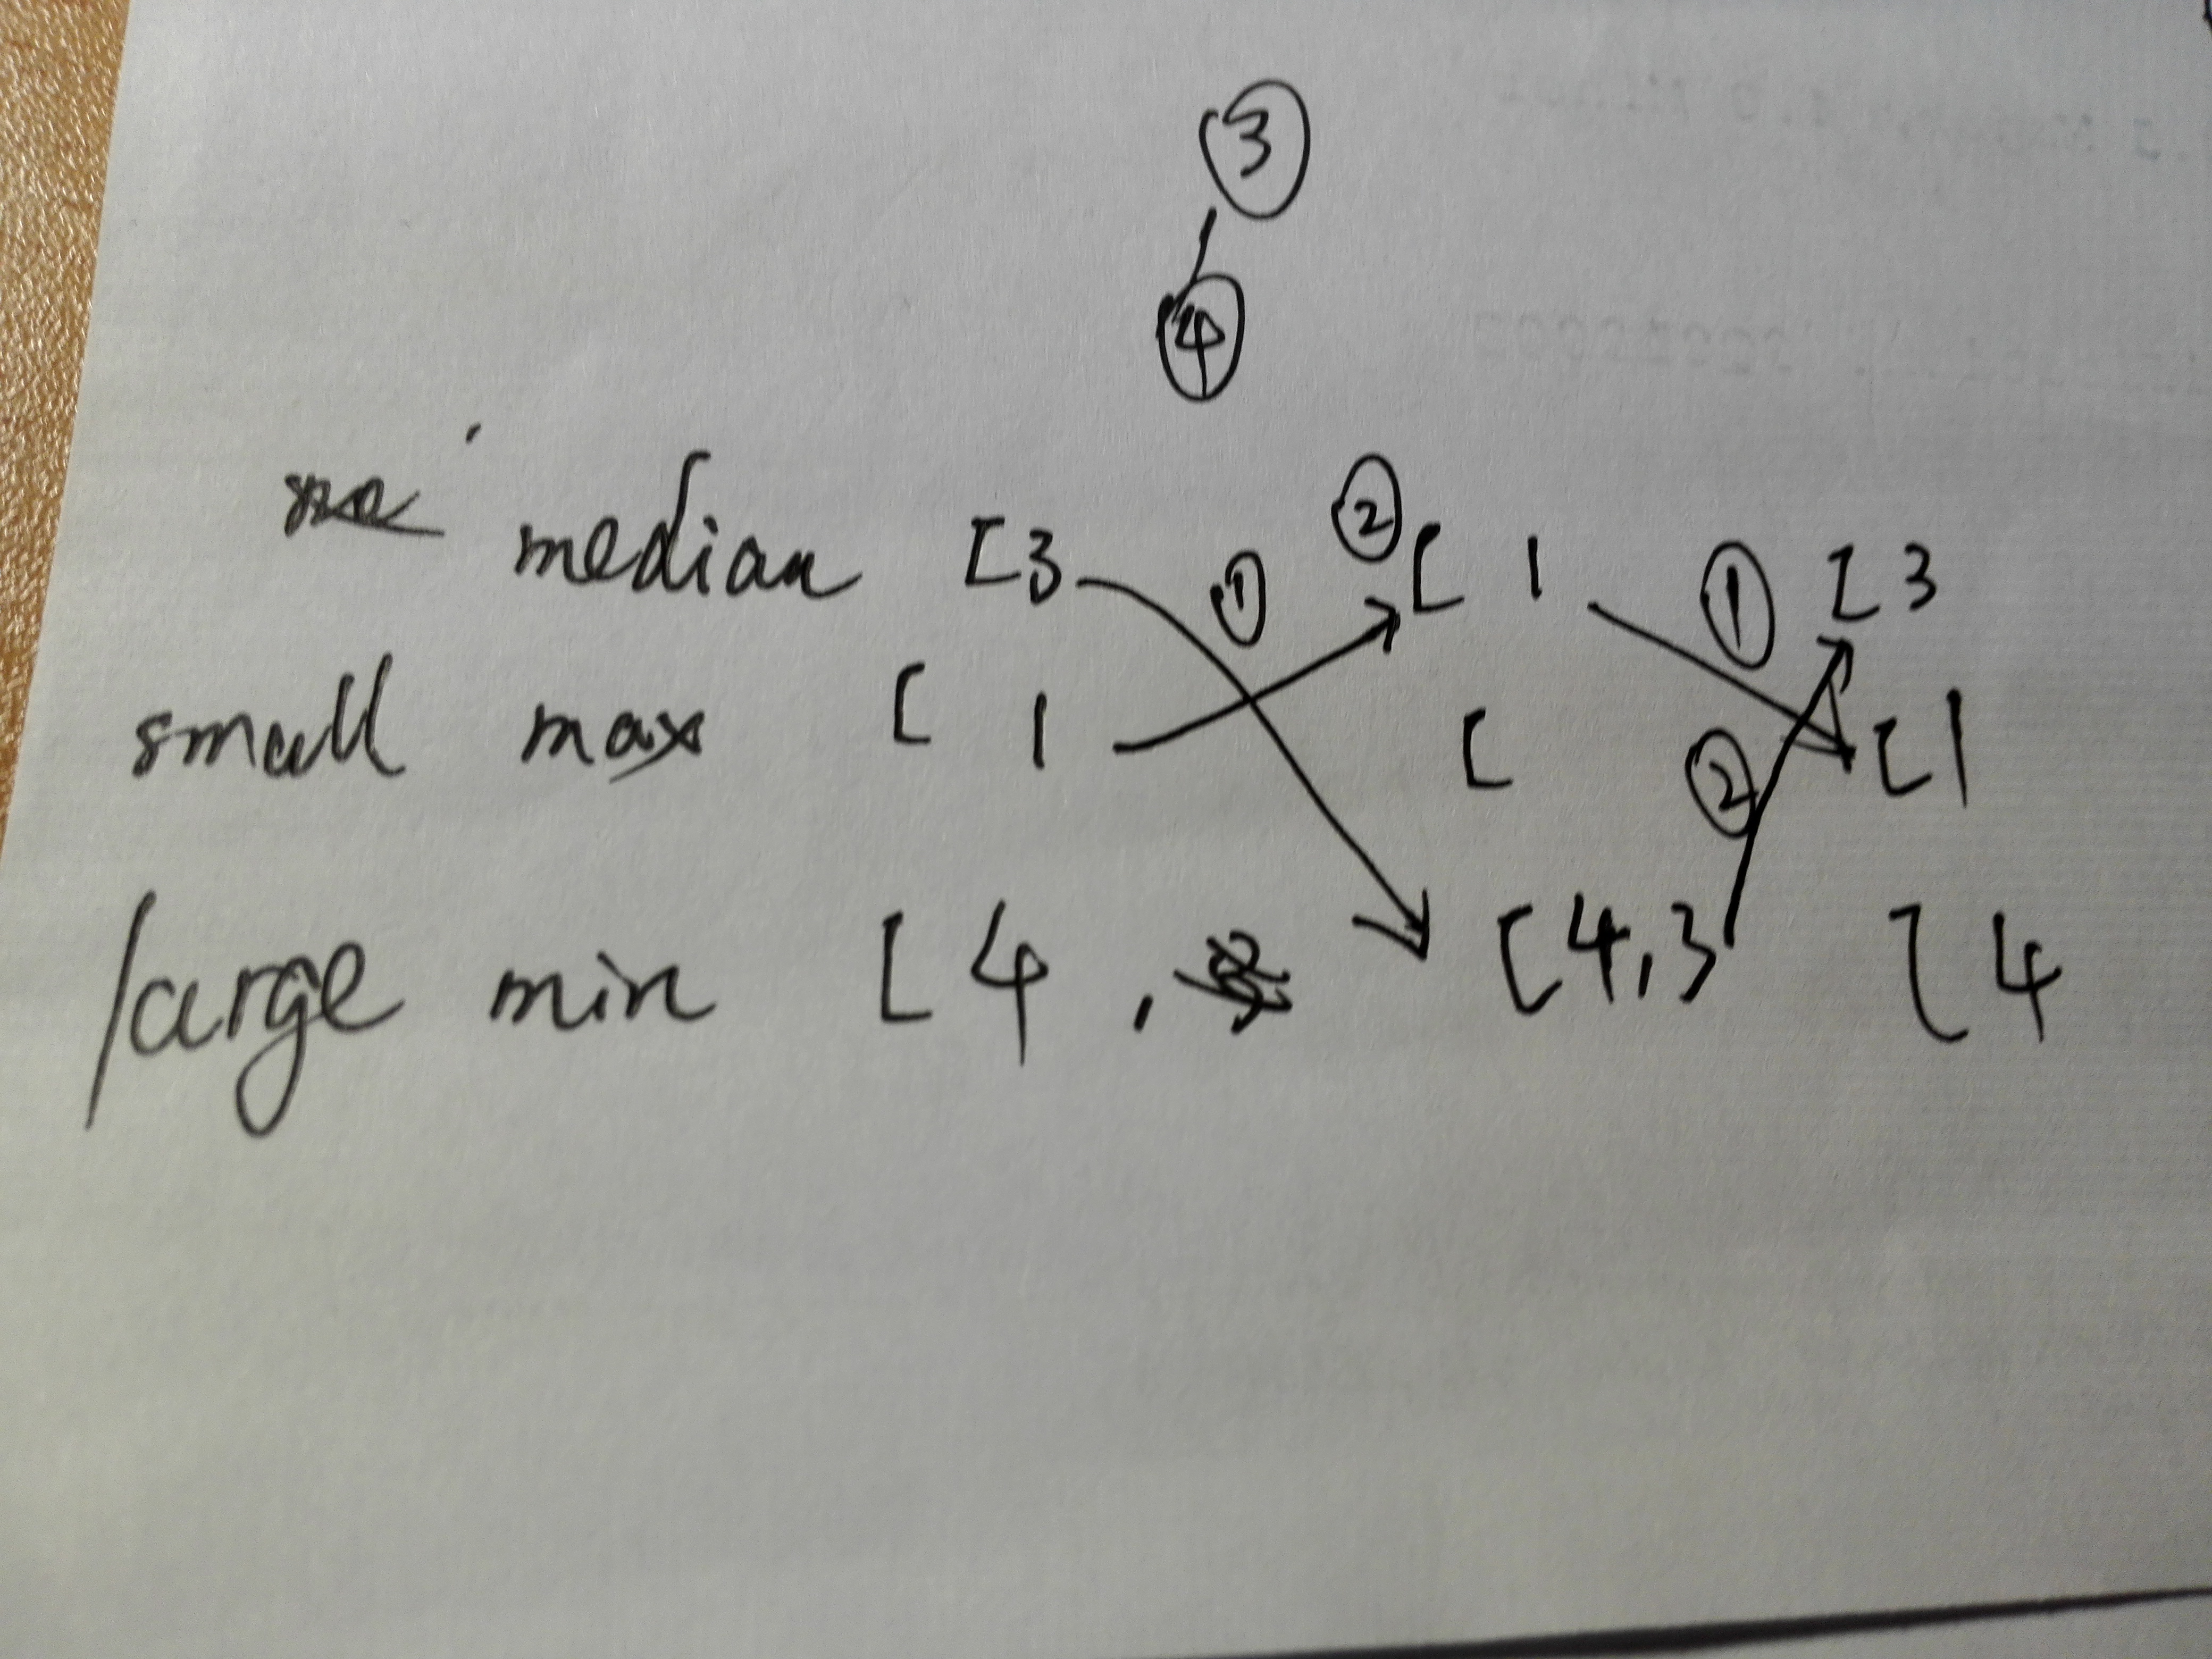 3
4
median [3 ① ② [ 1 ① [ 3
small max [ 1 [ ② [ 1
large min [ 4 , [4,3 [ 4